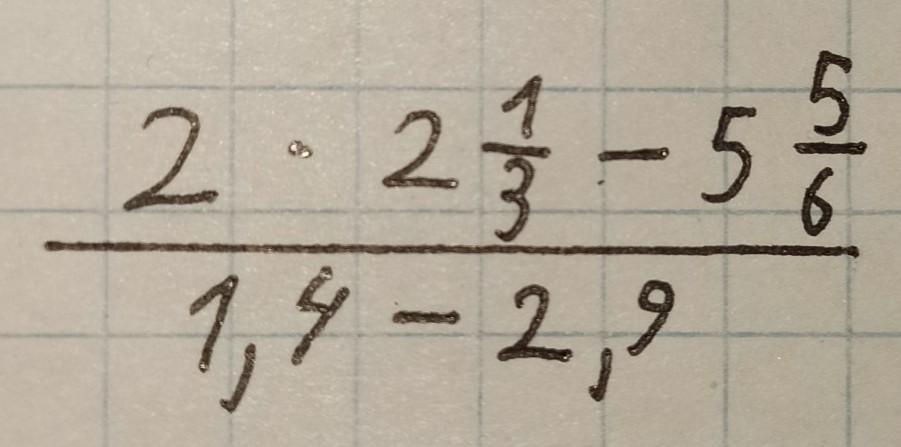 2 · 2 1/3 - 5 5/6
1,4 - 2,9